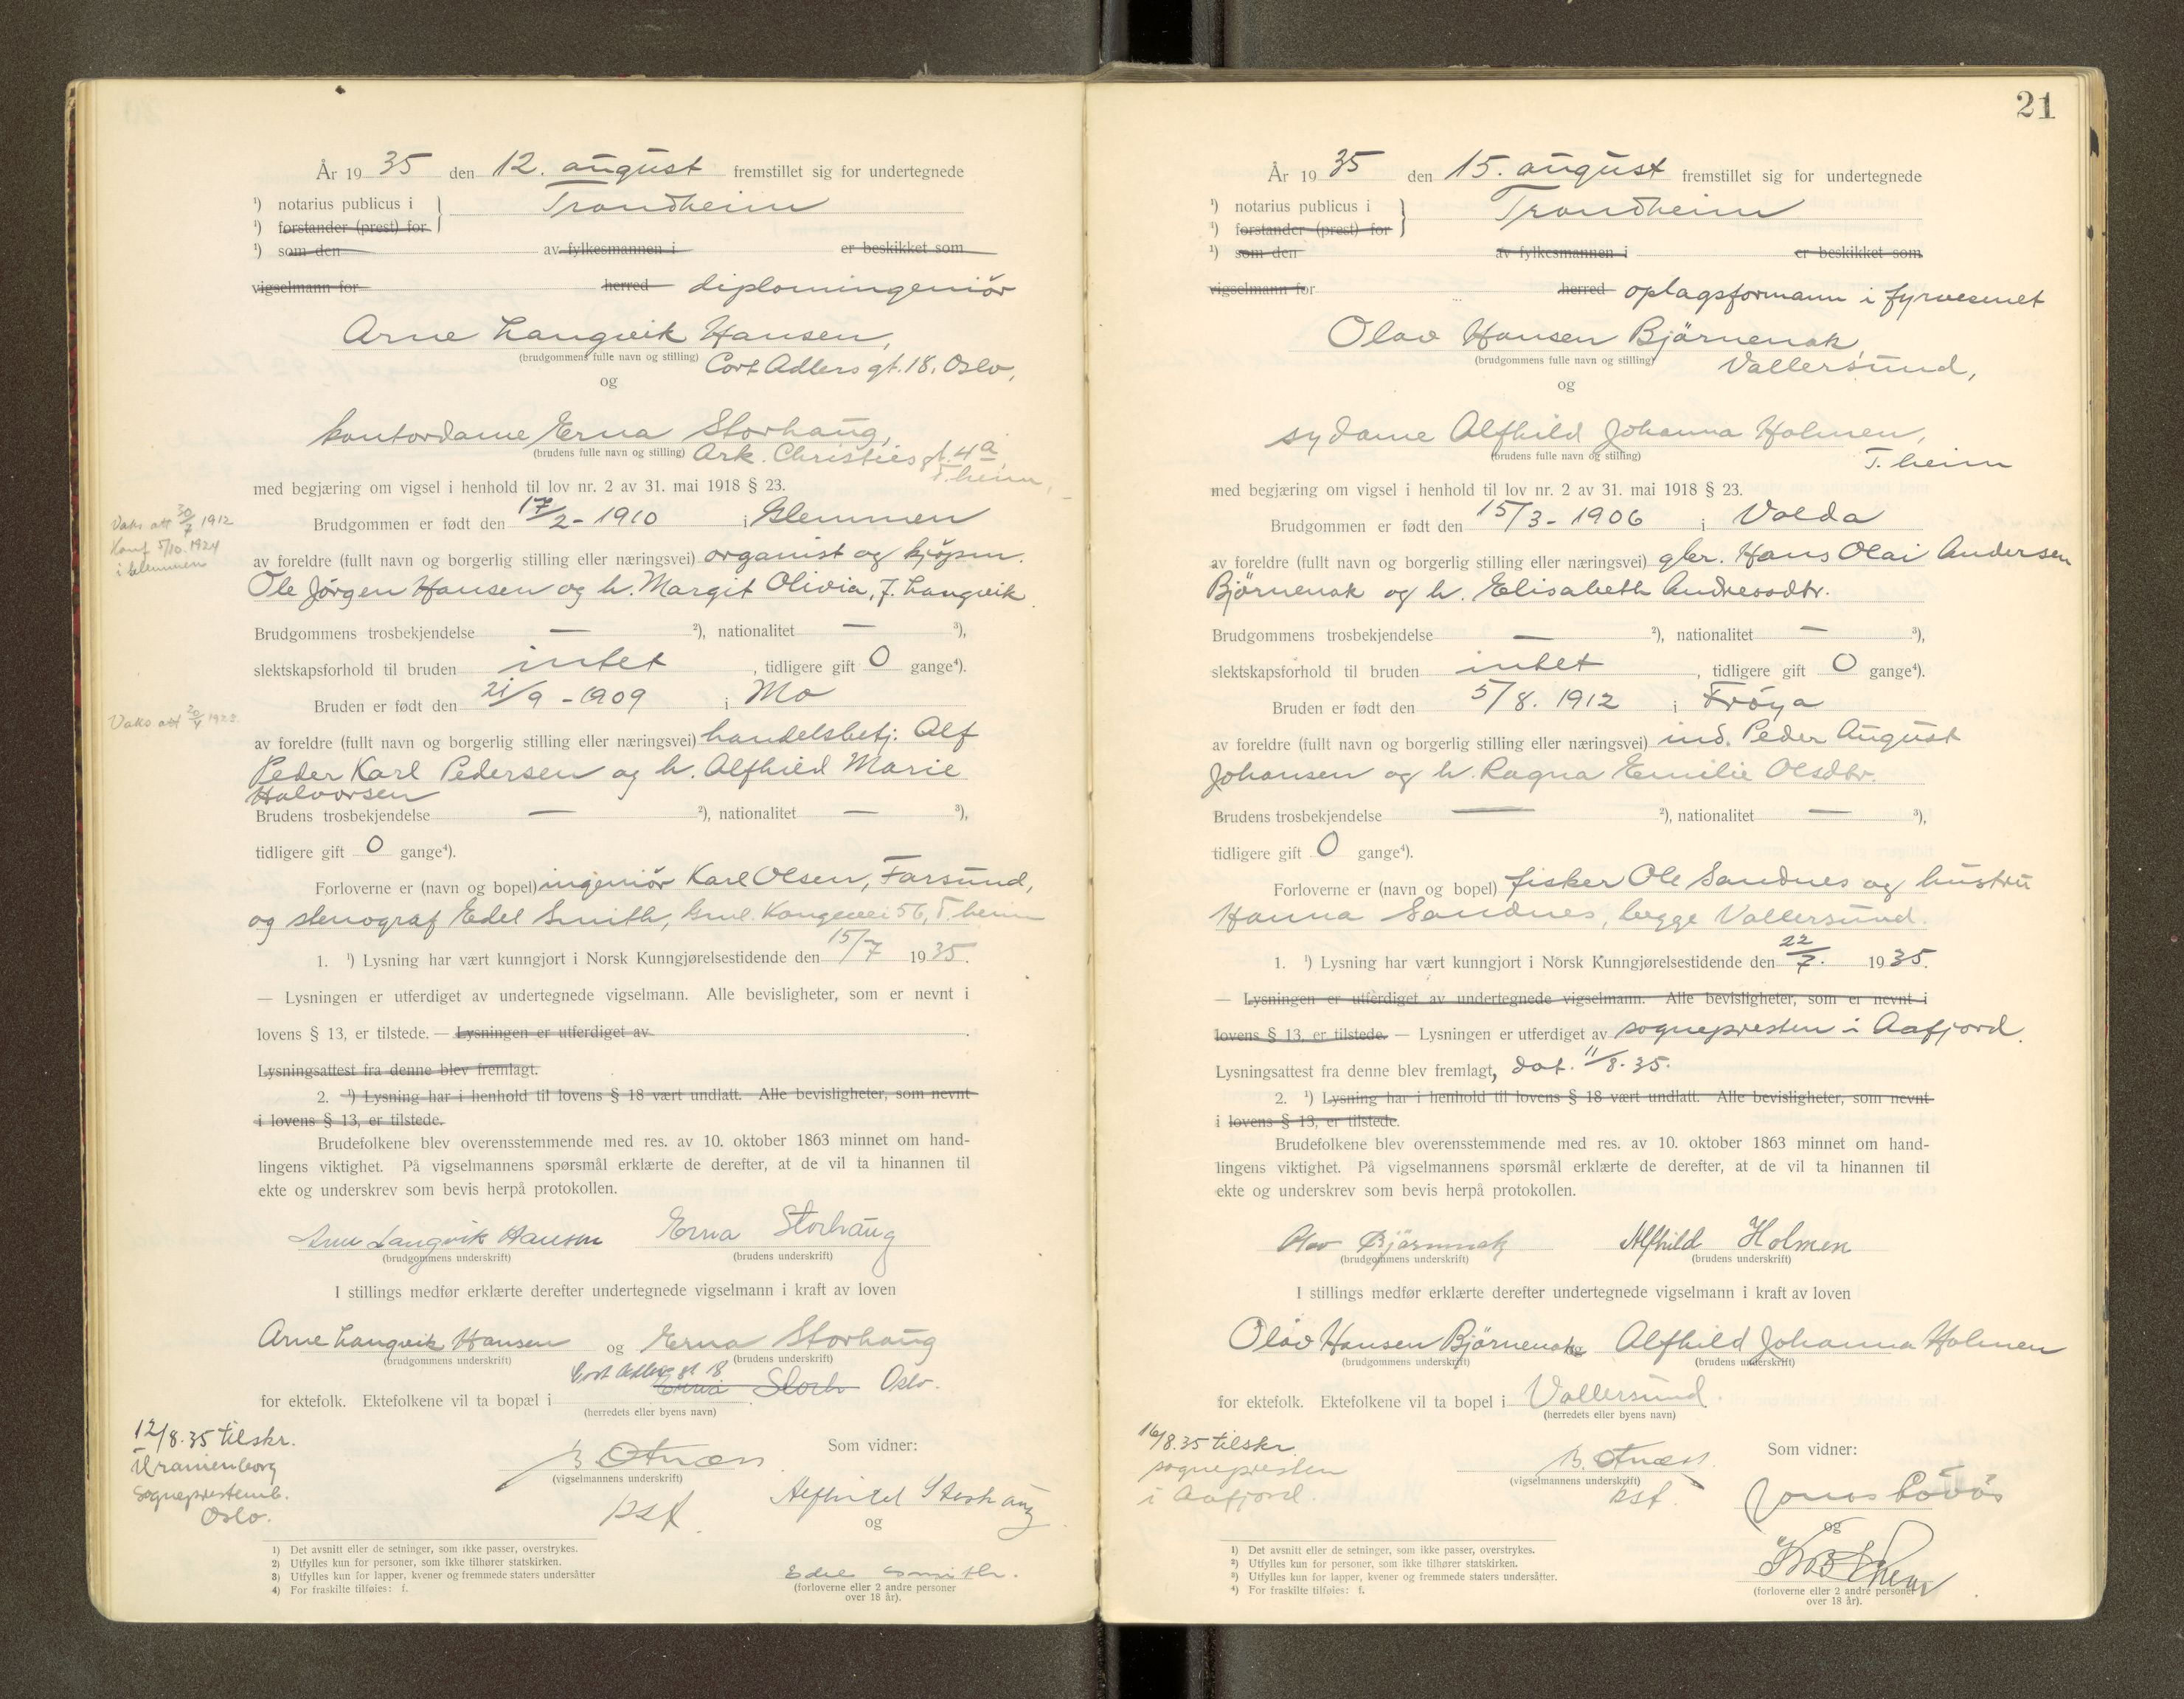 År 1935 den 12. august fremstillet sig for undertegnede
¹) notarius publicus i } Trondheim
¹) forstander (prest) for
¹) som den av fylkesmannen i er beskikket som
vigselmann for herred diplomingeniör
Arne Langvik Hansen,
(brudgommens fulle navn og stilling) Cort Adlers gt. 18. Oslo,
og
kontordame Erna Storhaug,
(brudens fulle navn og stilling) Ark. Christies gt. 4a
T.heim,
med begjæring om vigsel i henhold til lov nr. 2 av 31. mai 1918 § 23.
Vaks att 30/7 1912
Konf 5/10. 1924
i Glemmen
Brudgommen er født den 17/2 - 1910 i Glemmen
av foreldre (fullt navn og borgerlig stilling eller næringsvei) organist og kjøpm.
Ole Jørgen Hansen og h. Margit Olivia, f. Langvik
Brudgommens trosbekjendelse — ²), nationalitet — ³),
slektskapsforhold til bruden intet, tidligere gift 0 gange⁴).
Bruden er født den 21/9 - 1909 i Mo
Vaks att
av foreldre (fullt navn og borgerlig stilling eller næringsvei) handelsbetj. Alf
Peder Karl Pedersen og h. Alfhild Marie
Halvorsen
Brudens trosbekjendelse — ²), nationalitet — ³),
tidligere gift 0 gange⁴).
Forloverne er (navn og bopel) ingeniör Karl Olsen, Farsund,
og stenograf Edel Smith, Gml. Kongevei 56, T.heim
1. ¹) Lysning har vært kunngjort i Norsk Kunngjørelsestidende den 15/7 1935.
— Lysningen er utferdiget av undertegnede vigselmann. Alle bevisligheter, som er nevnt i
lovens § 13, er tilstede. — Lysningen er utferdiget av .
Lysningsattest fra denne blev fremlagt.
2. ¹) Lysning har i henhold til lovens § 18 vært undlatt. Alle bevisligheter, som nevnt
i lovens § 13, er tilstede.
Brudefolkene blev overensstemmende med res. av 10. oktober 1863 minnet om hand-
lingens viktighet. På vigselmannens spørsmål erklærte de derefter, at de vil ta hinannen til
ekte og underskrev som bevis herpå protokollen.
Arne Langvik Hansen Erna Storhaug
(brudgommens underskrift) (brudens underskrift)
I stillings medfør erklærte derefter undertegnede vigselmann i kraft av loven
Arne Langvik Hansen og Erna Storhaug
(brudgommens underskrift) (brudens underskrift)
Cort Adlers gt 18
for ektefolk. Ektefolkene vil ta bopæl i Erna Storh Oslo.
(herredets eller byens navn)
12/8.35 tilskr.
Uranienborg
Sogneprestemb.
Oslo.
Som vidner:
B. Otnæs
(vigselmannens underskrift)
bst.
Alfhild Storhaug
og
Edel Smith.
(forloverne eller 2 andre personer
over 18 år).
1) Det avsnitt eller de setninger, som ikke passer, overstrykes.
2) Utfylles kun for personer, som ikke tilhører statskirken.
3) Utfylles kun for lapper, kvener og fremmede staters undersåtter
4) For fraskilte tilføies: f.
21
År 1935 den 15. august fremstillet sig for undertegnede
¹) notarius publicus i } Trondheim
¹) forstander (prest) for
¹) som den av fylkesmannen i er beskikket som
vigselmann for herred oplagsformann i fyrvesenet
Olav Hansen Björnenak,
(brudgommens fulle navn og stilling) Vallersund,
og
sydame Alfhild Johanna Holmen,
(brudens fulle navn og stilling) T.heim
med begjæring om vigsel i henhold til lov nr. 2 av 31. mai 1918 § 23.
Brudgommen er født den 15/3 - 1906 i Volda
av foreldre (fullt navn og borgerlig stilling eller næringsvei) gbr. Hans Olai Andersen
Björnenak og h. Elisabeth Andreasdtr.
Brudgommens trosbekjendelse — ²), nationalitet — ³),
slektskapsforhold til bruden intet, tidligere gift 0 gange⁴).
Bruden er født den 5/8. 1912 i Fröya
av foreldre (fullt navn og borgerlig stilling eller næringsvei) ind. Peder August
Johansen og h. Ragna Emilie Olsdtr.
Brudens trosbekjendelse — ²), nationalitet — ³),
tidligere gift 0 gange⁴).
Forloverne er (navn og bopel) fisker Ole Sandnes og hustru
Hanna Sandnes, begge Vallersund.
1. ¹) Lysning har vært kunngjort i Norsk Kunngjørelsestidende den 22/7. 1935.
— Lysningen er utferdiget av undertegnede vigselmann. Alle bevisligheter, som er nevnt i
lovens § 13, er tilstede. — Lysningen er utferdiget av sognepresten i Aafjord.
Lysningsattest fra denne blev fremlagt, dat. 11/8.35.
2. ¹) Lysning har i henhold til lovens § 18 vært undlatt. Alle bevisligheter, som nevnt
i lovens § 13, er tilstede.
Brudefolkene blev overensstemmende med res. av 10. oktober 1863 minnet om hand-
lingens viktighet. På vigselmannens spørsmål erklærte de derefter, at de vil ta hinannen til
ekte og underskrev som bevis herpå protokollen.
Olav Björnenak Alfhild Holmen
(brudgommens underskrift) (brudens underskrift)
I stillings medfør erklærte derefter undertegnede vigselmann i kraft av loven
Olav Hansen Björnenak og Alfhild Johanna Holmen
(brudgommens underskrift) (brudens underskrift)
for ektefolk. Ektefolkene vil ta bopel i Vallersund.
(herredets eller byens navn)
16/8.35 tilskr.
sognepresten
i Aafjord.
Som vidner:
B. Otnæs.
(vigselmannens underskrift)
bst.
Jonas
og
(forloverne eller 2 andre personer
over 18 år).
¹) Det avsnitt eller de setninger, som ikke passer, overstrykes.
²) Utfylles kun for personer, som ikke tilhører statskirken.
³) Utfylles kun for lapper, kvener og fremmede staters undersåtter.
⁴) For fraskilte tilføies: f.